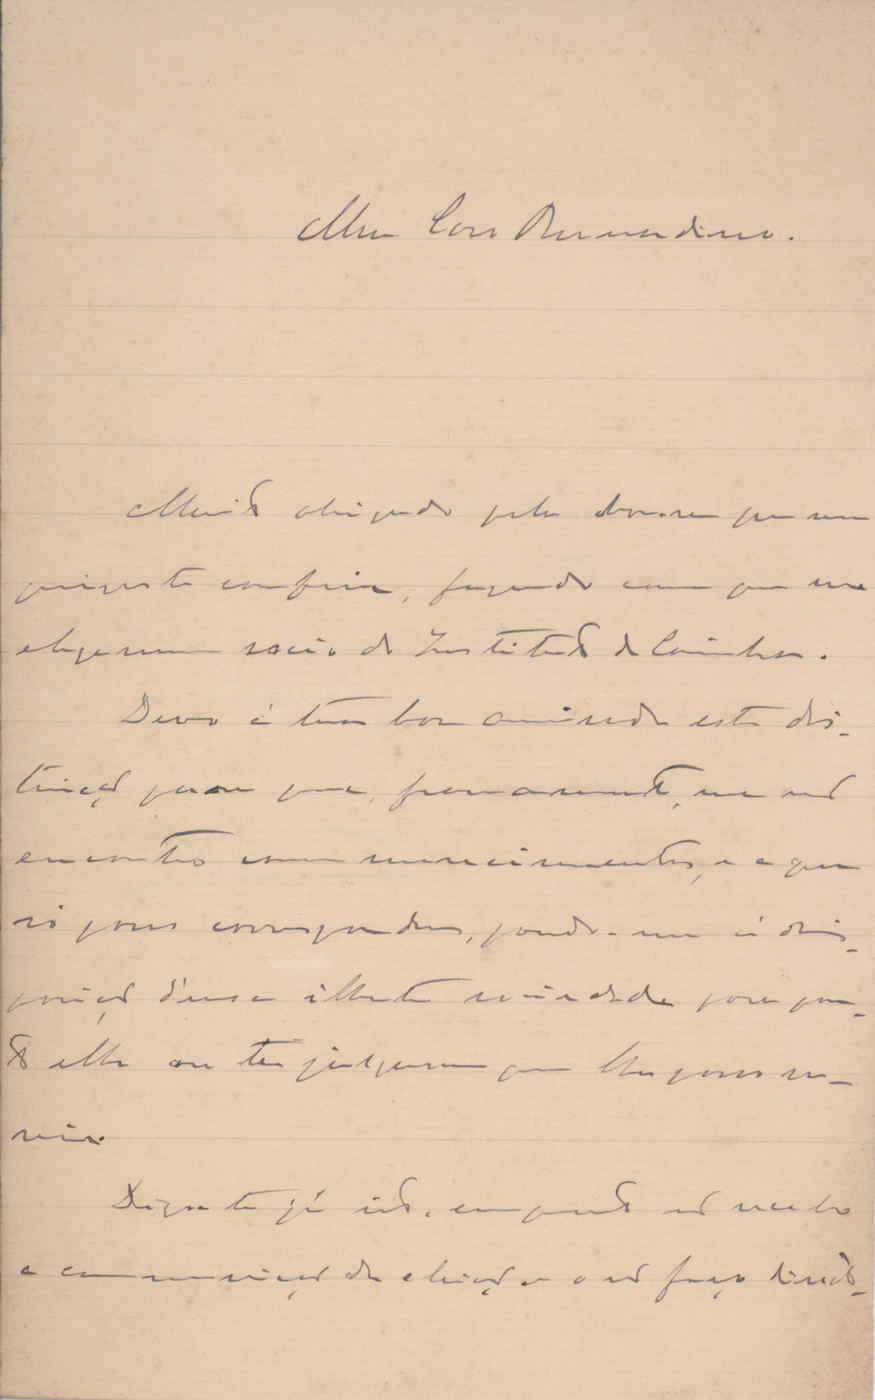 Meu Caro Bernardino.
Muito obrigado pela honra que me
quizeste conferir, fazendo com que me
elegessem socio do Instituto de Coimbra.
Devo á tua boa amisade esta dis-
tincção para que, francamente, me não
encontro com merecimentos, e a que
só posso corresponder, pondo-me á dis-
posição d'essa illustre sociedade para quan-
to ella ou tu julguem que lhe posso ser-
vir.
Digo-te já isto, emquanto não recebo
a communicação da eleição e o não faço direct-